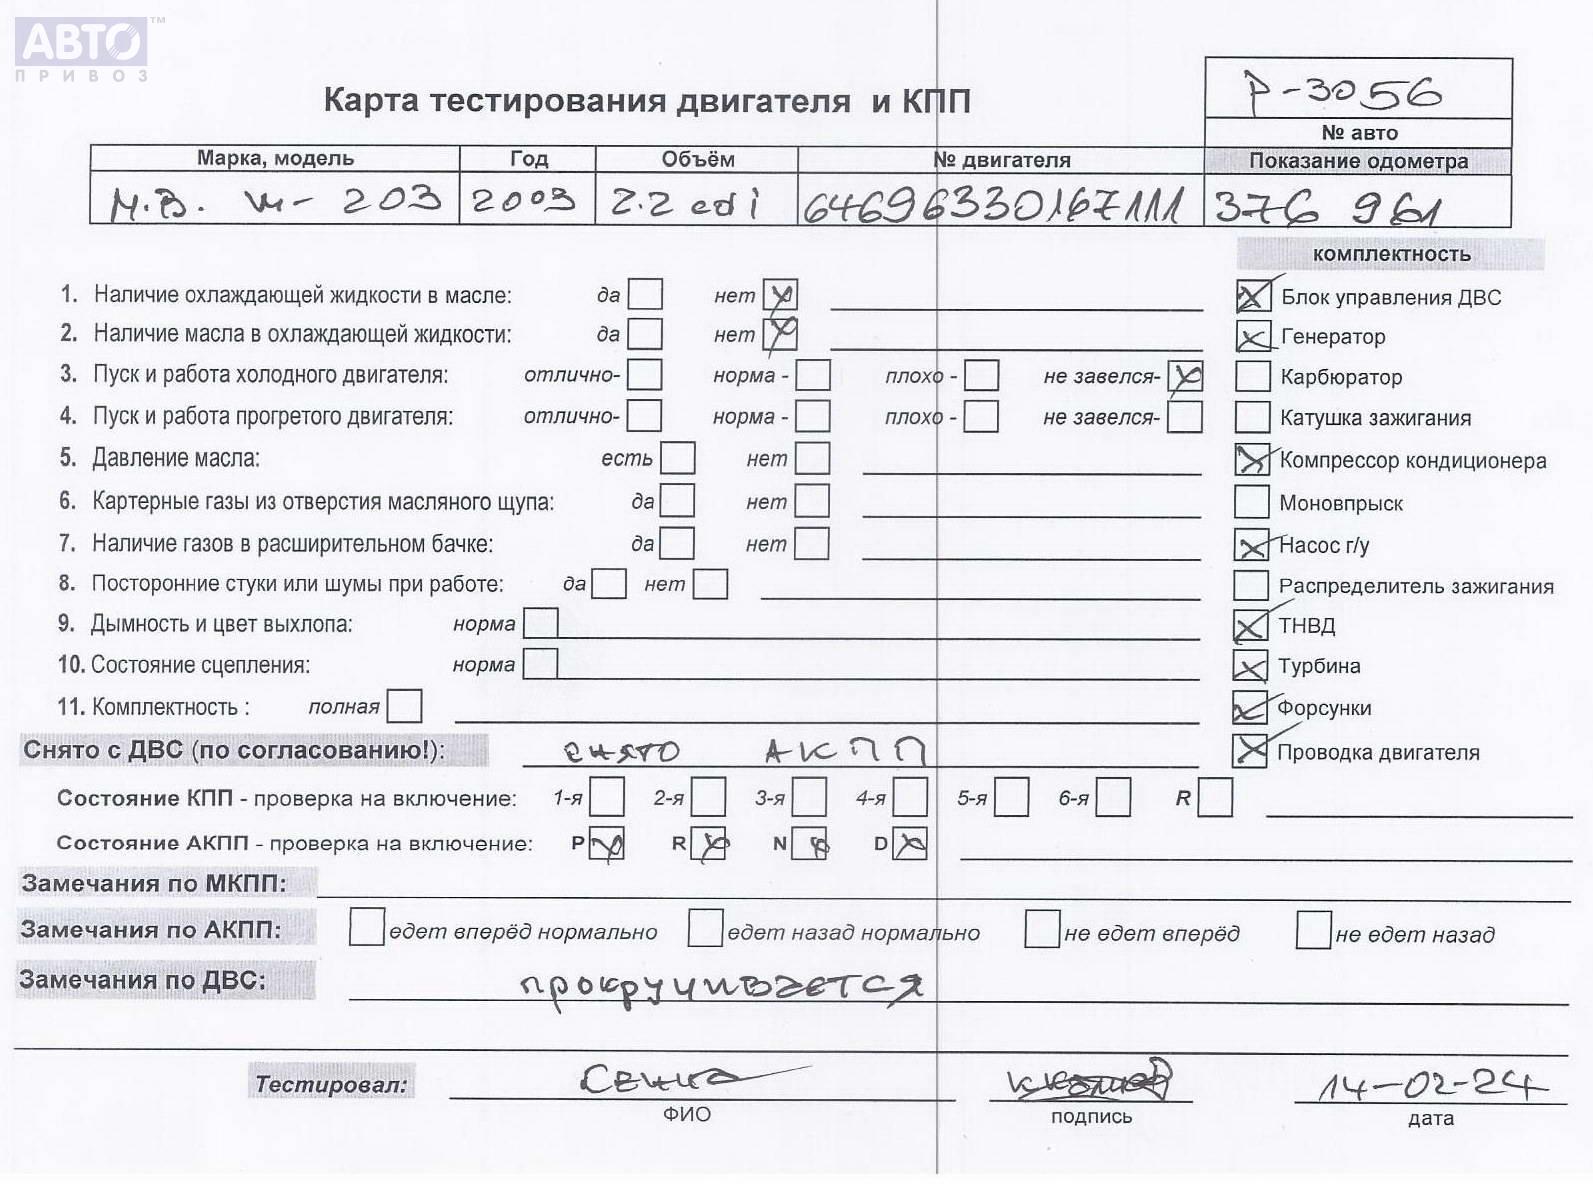 АВТО™
ПРИВОЗ
Карта тестирования двигателя и КПП
Р-3056
№ авто
Марка, модель Год Объём № двигателя Показание одометра
М.В. w-203 2003 2.2 cdi 64696330167111 376 961
комплектность
1. Наличие охлаждающей жидкости в масле: да нет Блок управления ДВС
2. Наличие масла в охлаждающей жидкости: да нет Генератор
3. Пуск и работа холодного двигателя: отлично- норма - плохо - не завелся- Карбюратор
4. Пуск и работа прогретого двигателя: отлично- норма - плохо - не завелся- Катушка зажигания
5. Давление масла: есть нет Компрессор кондиционера
6. Картерные газы из отверстия масляного щупа: да нет Моновпрыск
7. Наличие газов в расширительном бачке: да нет Насос г/у
8. Посторонние стуки или шумы при работе: да нет Распределитель зажигания
9. Дымность и цвет выхлопа: норма ТНВД
10. Состояние сцепления: норма Турбина
11. Комплектность : полная Форсунки
Снято с ДВС (по согласованию!): снято АКПП Проводка двигателя
Состояние КПП - проверка на включение: 1-я 2-я 3-я 4-я 5-я 6-я R
Состояние АКПП - проверка на включение: P R N D
Замечания по МКПП:
Замечания по АКПП: едет вперёд нормально едет назад нормально не едет вперёд не едет назад
Замечания по ДВС: прокручивается
Тестировал: Сенка 14-02-24
ФИО подпись дата